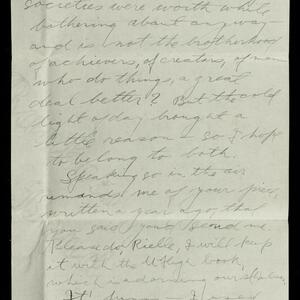 societies were worth while
bothering about anyway -
and is not the brotherhood
of achievers, of creators, of men
who do things, a great
deal better? But the cold
light of day brought a
little reason - so I hope
to belong to both.
Speaking so in the air
reminds me of your piece
written a year ago, that
you said you'd send me.
Please do, Rickie, I will keep
it with the book,
which is adorning our shelves.
It's funny I